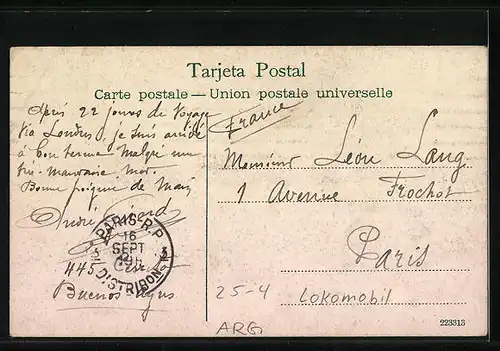 Tarjeta Postal
Carte postale — Union postale universelle
France
Après 22 jours de Voyage
Via Londres, je suis arrivé
à bon terme Malgré une
très mauvaise mer.
Bonne poignée de Main
André
445
Buenos Ayres
PARIS R.P.
16
SEPT
DISTRIBON
Monsieur Léon Lang
1 Avenue Frochot
Paris
25-4 Lokomobil
ARG
223313